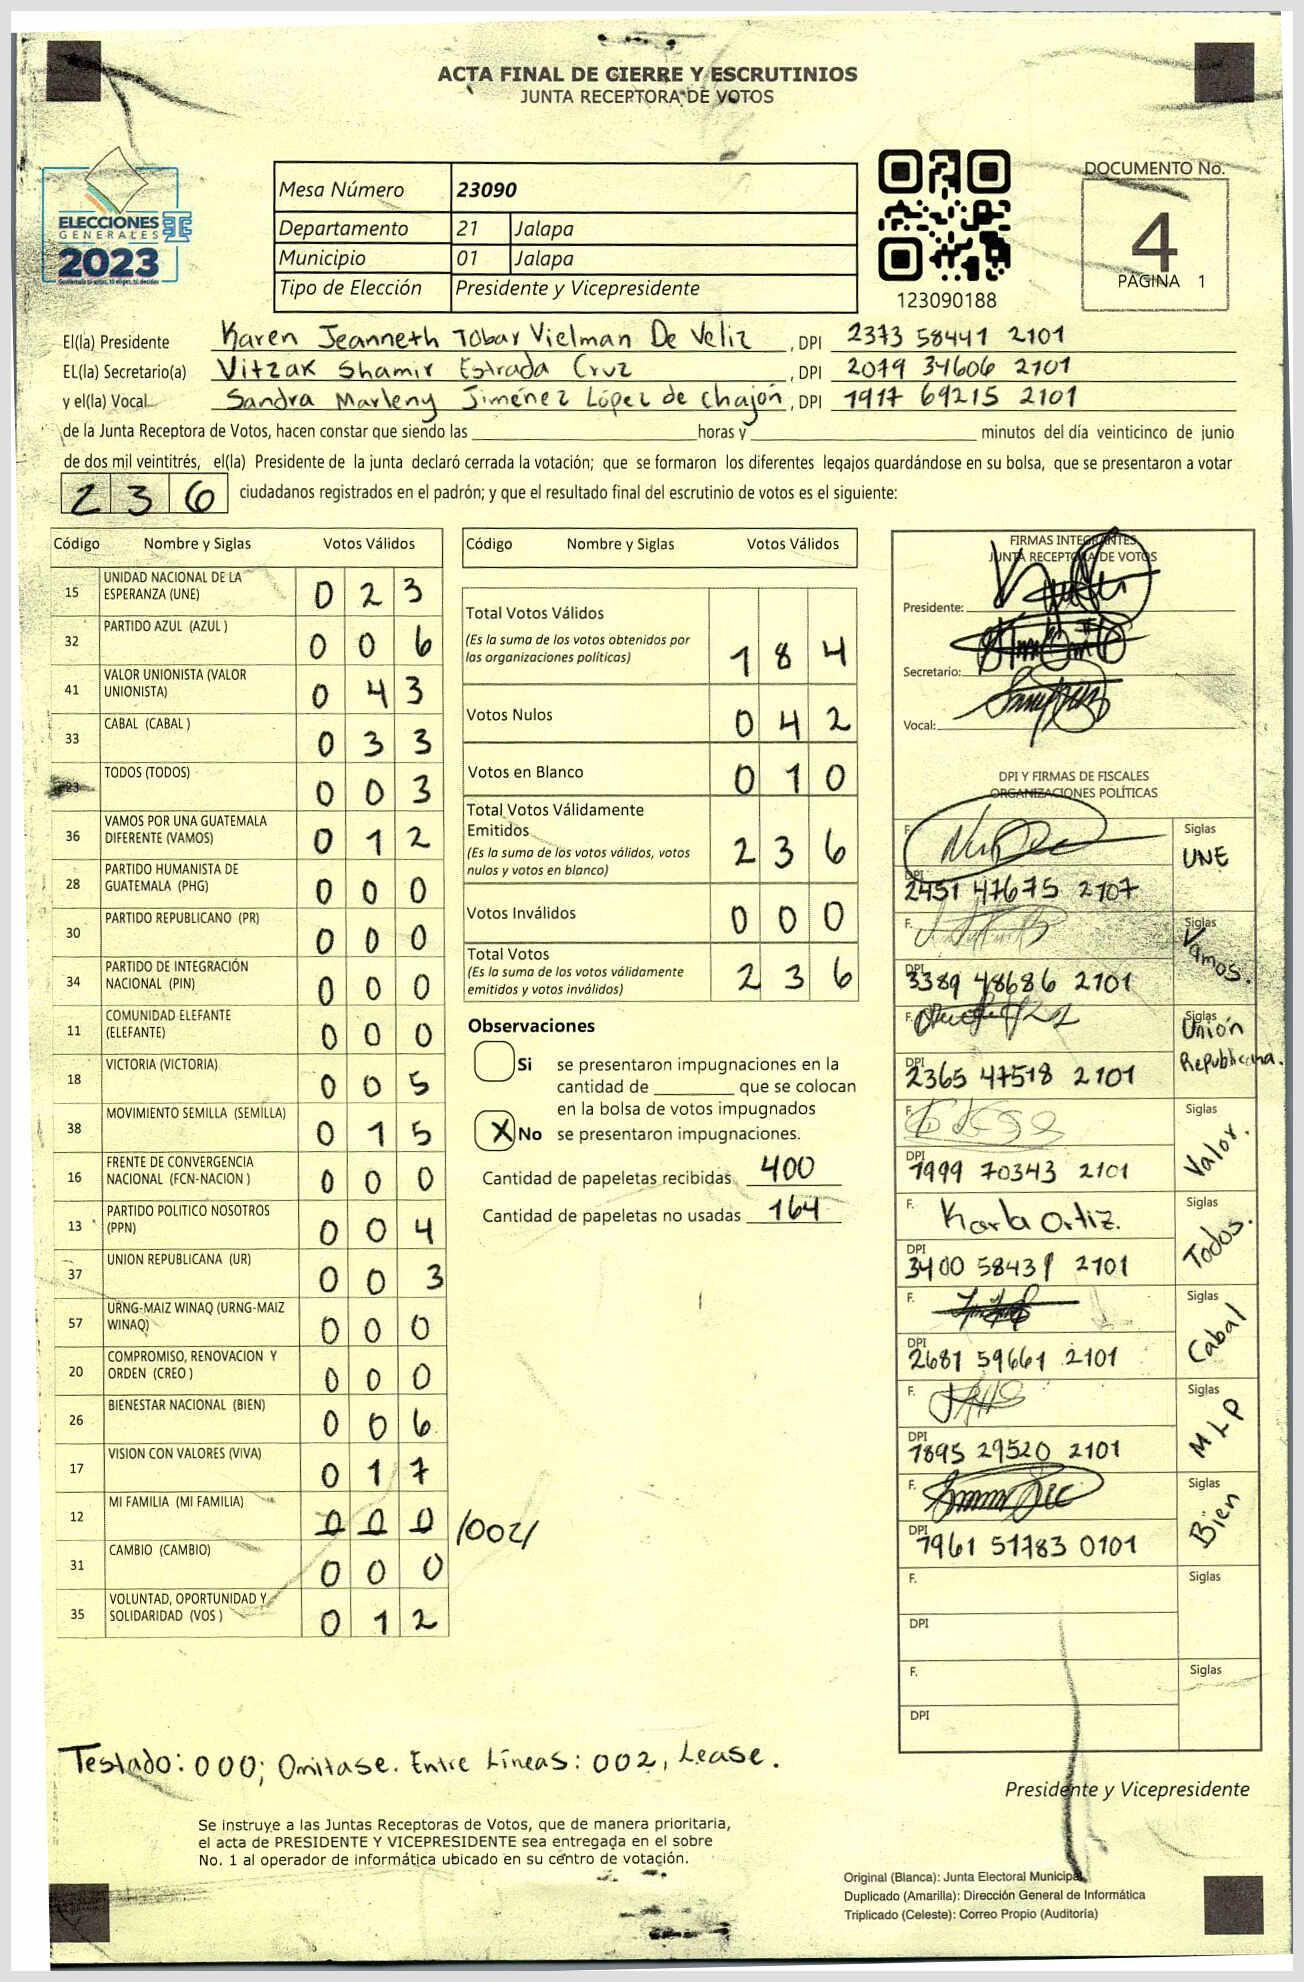 ACTA FINAL DE CIERRE Y ESCRUTINIOS
JUNTA RECEPTORA DE VOTOS
ELECCIONES
GENERALES
2023
Mesa Número 23090
Departamento 21 Jalapa
Municipio 01 Jalapa
Tipo de Elección Presidente y Vicepresidente
123090188
DOCUMENTO No.
4
PÁGINA 1
El(la) Presidente Karen Jeanneth Tobar Vielman De Veliz, DPI 2373 58441 2101
EL(la) Secretario(a) Vitzak Shamir Estrada Cruz, DPI 2079 34606 2101
y el(la) Vocal Sandra Marleny Jiménez López de Chajón, DPI 1917 69215 2101
de la Junta Receptora de Votos, hacen constar que siendo las horas y minutos del día veinticinco de junio
de dos mil veintitrés, el(la) Presidente de la junta declaró cerrada la votación; que se formaron los diferentes legajos guardándose en su bolsa, que se presentaron a votar
236 ciudadanos registrados en el padrón; y que el resultado final del escrutinio de votos es el siguiente:
Código Nombre y Siglas Votos Válidos
15 UNIDAD NACIONAL DE LA ESPERANZA (UNE) 0 2 3
32 PARTIDO AZUL (AZUL ) 0 0 6
41 VALOR UNIONISTA (VALOR UNIONISTA) 0 4 3
33 CABAL (CABAL ) 0 3 3
23 TODOS (TODOS) 0 0 3
36 VAMOS POR UNA GUATEMALA DIFERENTE (VAMOS) 0 1 2
28 PARTIDO HUMANISTA DE GUATEMALA (PHG) 0 0 0
30 PARTIDO REPUBLICANO (PR) 0 0 0
34 PARTIDO DE INTEGRACIÓN NACIONAL (PIN) 0 0 0
11 COMUNIDAD ELEFANTE (ELEFANTE) 0 0 0
18 VICTORIA (VICTORIA) 0 0 5
38 MOVIMIENTO SEMILLA (SEMILLA) 0 1 5
16 FRENTE DE CONVERGENCIA NACIONAL (FCN-NACION ) 0 0 0
13 PARTIDO POLITICO NOSOTROS (PPN) 0 0 4
37 UNION REPUBLICANA (UR) 0 0 3
57 URNG-MAIZ WINAQ (URNG-MAIZ WINAQ) 0 0 0
20 COMPROMISO, RENOVACION Y ORDEN (CREO ) 0 0 0
26 BIENESTAR NACIONAL (BIEN) 0 0 6
17 VISION CON VALORES (VIVA) 0 1 7
12 MI FAMILIA (MI FAMILIA) 0 0 0 /002/
31 CAMBIO (CAMBIO) 0 0 0
35 VOLUNTAD, OPORTUNIDAD Y SOLIDARIDAD (VOS ) 0 1 2
Código Nombre y Siglas Votos Válidos
Total Votos Válidos 1 8 4
(Es la suma de los votos obtenidos por
las organizaciones políticas)
Votos Nulos 0 4 2
Votos en Blanco 0 1 0
Total Votos Válidamente
Emitidos 2 3 6
(Es la suma de los votos válidos, votos
nulos y votos en blanco)
Votos Inválidos 0 0 0
Total Votos 2 3 6
(Es la suma de los votos válidamente
emitidos y votos inválidos)
Observaciones
Si se presentaron impugnaciones en la
cantidad de que se colocan
en la bolsa de votos impugnados
X No se presentaron impugnaciones.
Cantidad de papeletas recibidas 400
Cantidad de papeletas no usadas 164
FIRMAS INTEGRANTES
JUNTA RECEPTORA DE VOTOS
Presidente:
Secretario:
Vocal:
DPI Y FIRMAS DE FISCALES
ORGANIZACIONES POLÍTICAS
F. Siglas UNE
DPI 2451 47675 2107
F. Siglas Vamos.
DPI 3389 48686 2101
F. Siglas Unión Republicana.
DPI 2365 47518 2101
F. Siglas Valor.
DPI 1999 70343 2101
F. Karla Ortiz. Siglas Todos.
DPI 3400 58431 2101
F. Siglas Cabal
DPI 2681 59661 2101
F. Siglas MLP
DPI 1895 29520 2101
F. Siglas Bien
DPI 1961 51783 0101
F. Siglas
DPI
F. Siglas
DPI
Testado: 000; Omitase. Entre Líneas: 002, Lease.
Presidente y Vicepresidente
Se instruye a las Juntas Receptoras de Votos, que de manera prioritaria,
el acta de PRESIDENTE Y VICEPRESIDENTE sea entregada en el sobre
No. 1 al operador de informática ubicado en su centro de votación.
Original (Blanca): Junta Electoral Municipal
Duplicado (Amarilla): Dirección General de Informática
Triplicado (Celeste): Correo Propio (Auditoría)